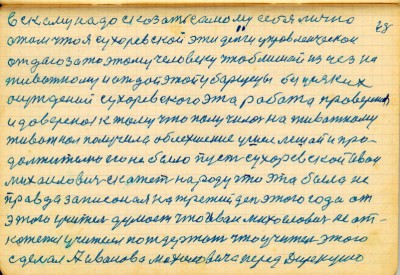 всему надо сказать самому себя лично
38
о том что я сухоревской эти дйги управленческой
отдаго за то этому человеку что лишай изчез на
животному и отдой этой уборщицы бузцяких
осуждений сухоревского эта работа проверина
и доверсоя к тому что получилоя на животному
животная получила облехшение учим лешай и про-
должительно его не было пусть сухоревской Иван
михаилович скажет народу что эта была не
правда записоная на третий ден этого года от
этого учителя думает что Иван михоилович не от-
учителя потдержат что учитель этого
сделал А иванова михоиловича перед Дирекцию